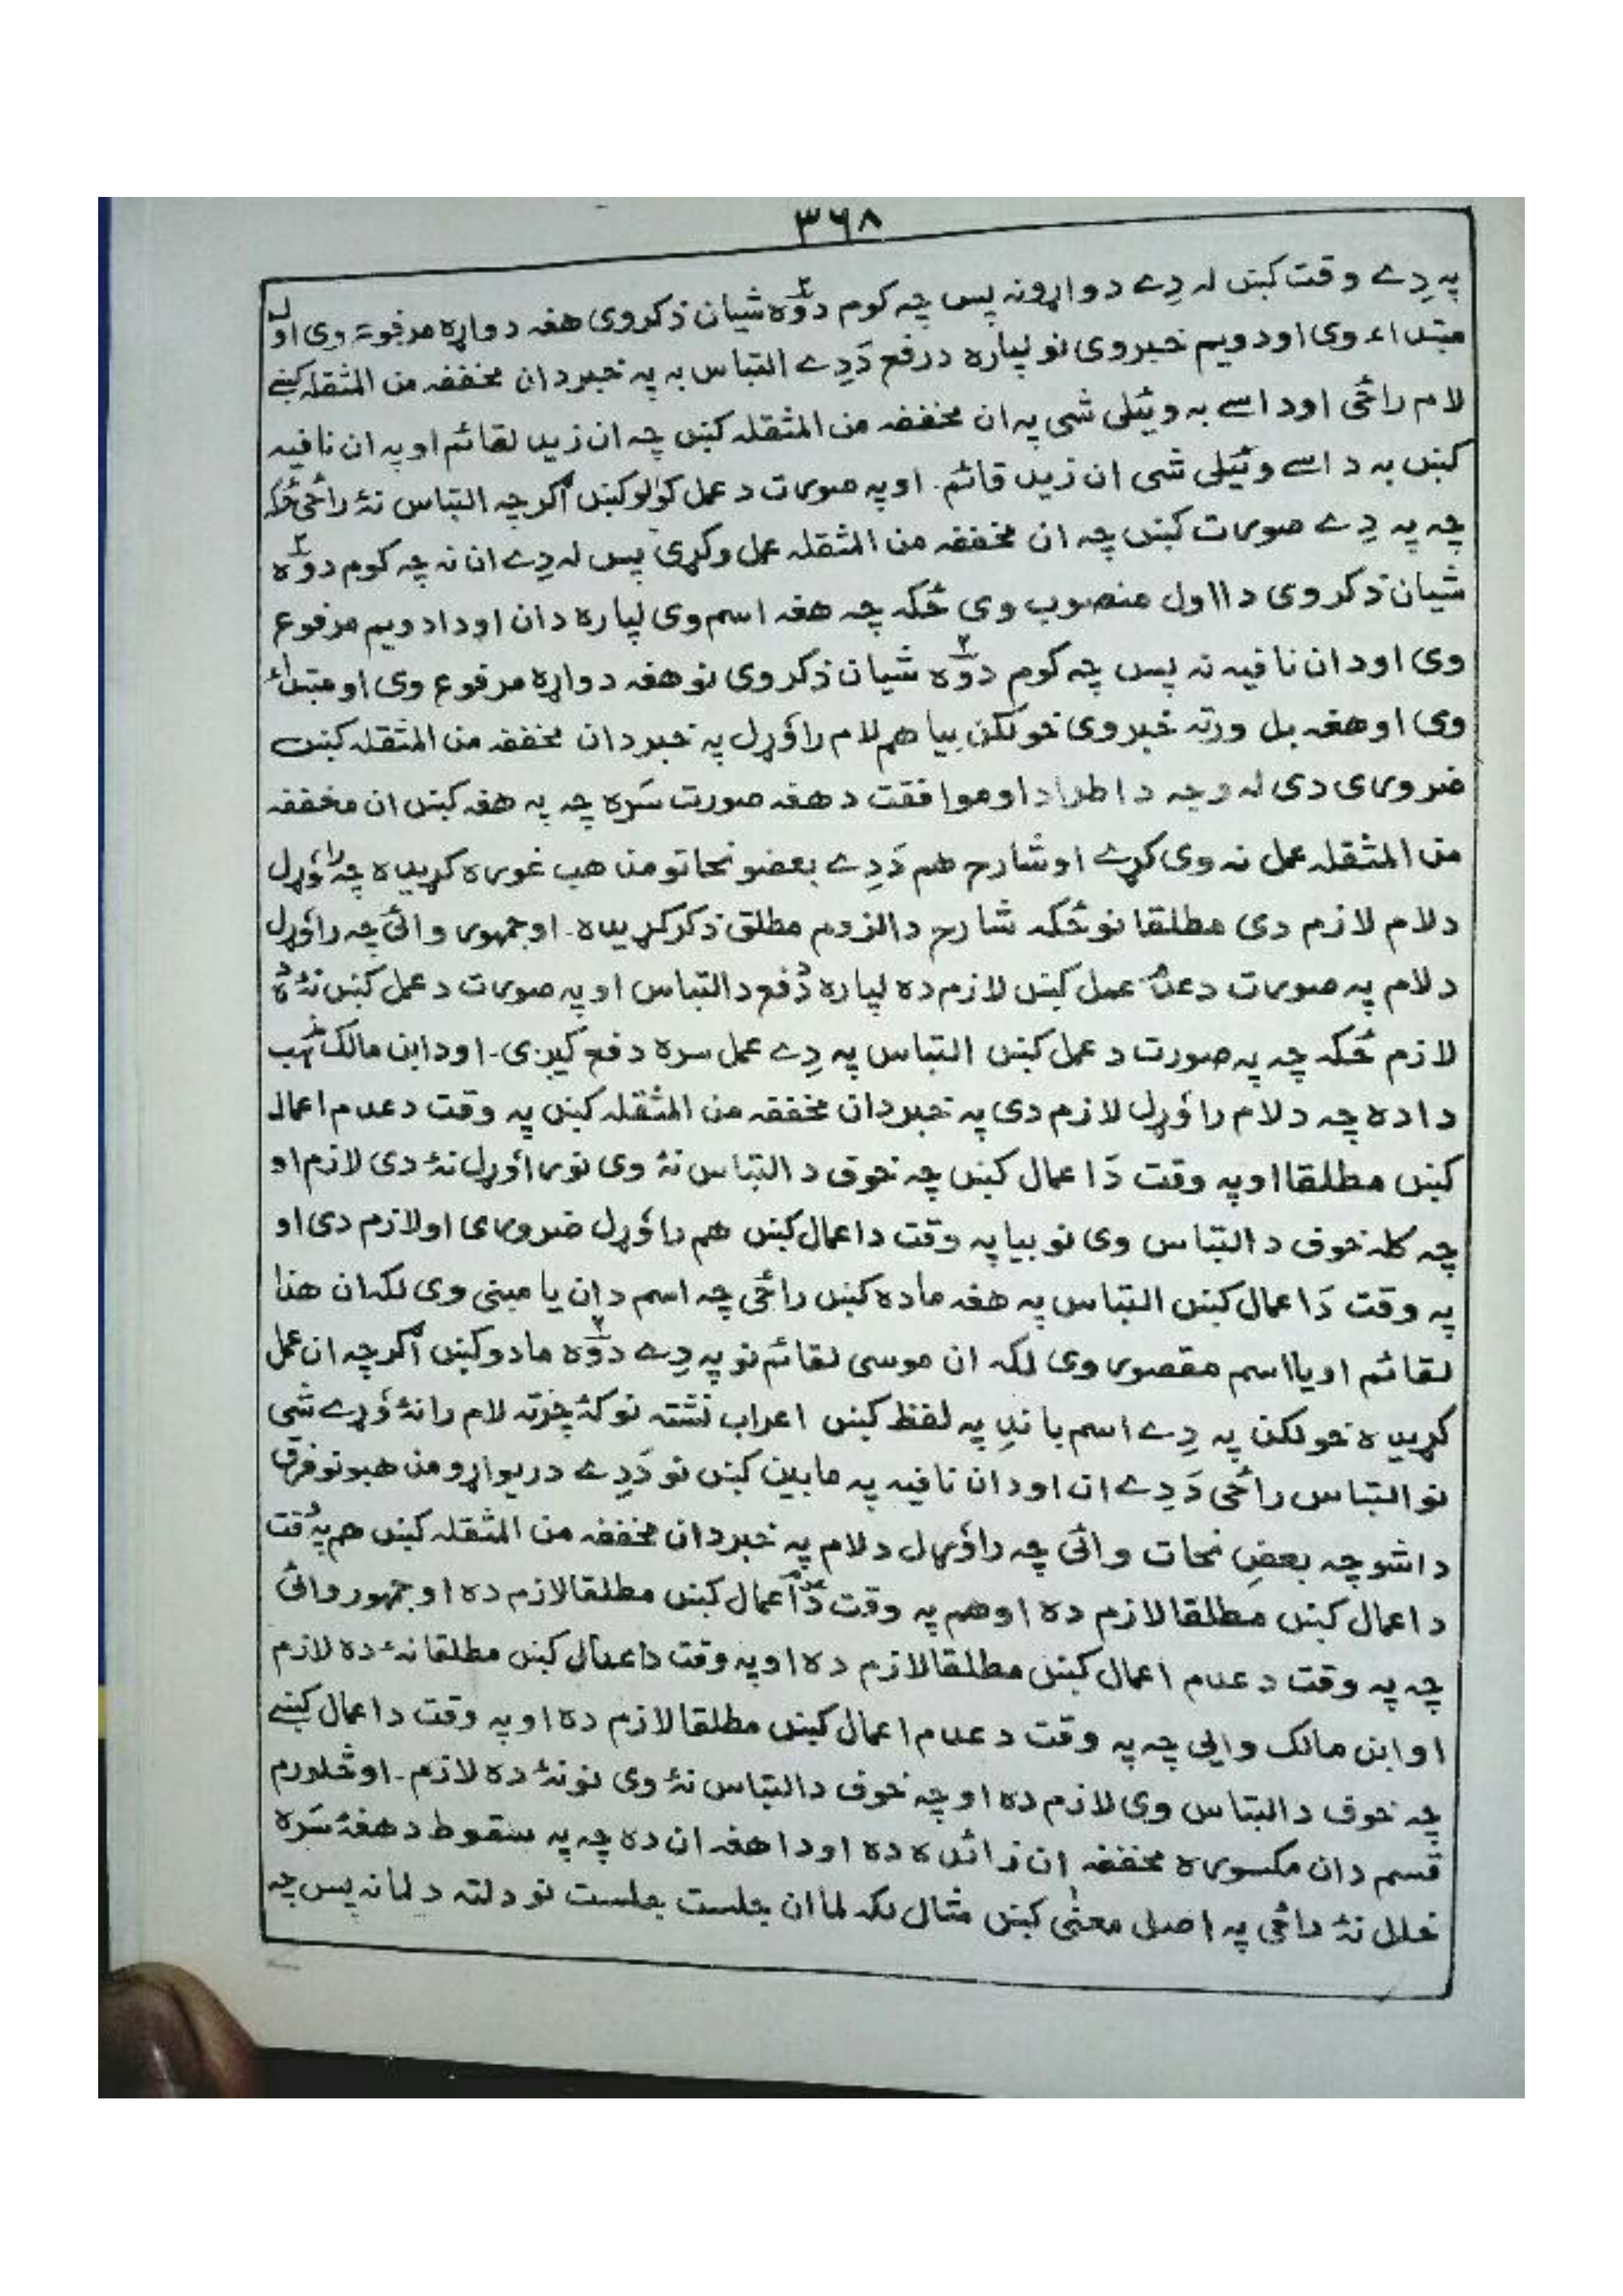 ٣٦٨
په دِے وقت کښں له دِے دواړونه پس چه کوم دوَّه شیان ذکروی هغه دواړه مرفوع وی اول
مبتداء وی اودویم خبروی نو لپاره درفع دَدِے التباس به په خبردان مخففه من المثقله کښے
لام راځی اوداسے به وئیلی شی په ان مخففه من المثقله کښں چه ان زید لقائم اوپه ان نافیه
کښں به داسے وئیلی شی ان زید قائم. اوپه صورت دعمل کولوکښں اگرچه التباس نۀ راځی ځکه
چه په دِے صورت کښں چه ان مخففه من المثقله عمل وکړی پس له دِے ان نه چه کوم دوَّه
شیان ذکروی دااول منصوب وی ځکه چه هغه اسم وی لپاره دان اودا دویم مرفوع
وی اودان نافیه نه پس چه کوم دوَّه شیان ذکروی نوهغه دواړه مرفوع وی اومبتداء
وی اوهغه بل ورته خبروی خولکن بیاهم لام راوُړل په خبردان مخففه من المثقله کښں
ضروری دی له وجه داطراد اوموافقت دهغه صورت سَره چه په هغه کښں ان مخففه
من المثقله عمل نه وی کړے اوشارح هم دَدِے بعضو نحاتو مذهب غوره کړیده چه راوُړل
دلام لازم دی مطلقا نوځکه شارح دالزوم مطلق ذکرکړیده. اوجمهور وائی چه راوُړل
دلام په صورت دعدم عمل کښں لازم ده لپاره دَدفع دالتباس اوپه صورت دعمل کښں نۀ ده
لازم ځکه چه په صورت دعمل کښں التباس په دِے عمل سره دفع کیږی. اودابن مالک مذهب
داده چه دلام راوُړل لازم دی په خبردان مخففه من المثقله کښں په وقت دعدم اعمال
کښں مطلقا اوپه وقت دَاعمال کښں چه خوف دالتباس نۀ وی نوراوُړل نۀ دی لازم او
چه کله خوف دالتباس وی نوبیا په وقت داعمال کښں هم راوُړل ضروری اولازم دی او
په وقت دَاعمال کښں التباس په هغه ماده کښں راځی چه اسم دان یا مبنی وی لکه ان هذا
لقائم اویااسم مقصور وی لکه ان موسی لقائم نوپه دِے دوَّه مادوکښں اگرچه ان عمل
کړیده خولکن په دِے اسم باندِ په لفظ کښں اعراب نشته نوکۀ چرته لام رانۀ وُړے شی
نوالتباس راځی دَدِے ان اودان نافیه په مابین کښں نودَدِے دریواړو مذهبونو فرق
داشو چه بعضِ نحات وائی چه راوُړل دلام په خبردان مخففه من المثقله کښں هم په وقت
داعمال کښں مطلقا لازم ده اوهم په وقت دَعدم اعمال کښں مطلقا لازم ده اوجمهور وائی
چه په وقت دعدم اعمال کښں مطلقا لازم ده اوپه وقت داعمال کښں مطلقا نۀ ده لازم
اوابن مالک وایی چه په وقت دعدم اعمال کښں مطلقا لازم ده اوپه وقت داعمال کښے
چه خوف دالتباس وی لازم ده اوچه خوف دالتباس نۀ وی نونۀ ده لازم. اوڅلورم
قسم دان مکسوره مخففه ان زائده ده اوداهغه ان ده چه په سقوط دهغۀ سَره
خلل نۀ راځی په اصل معنٰی کښں مثال لکه لماان جلست جلست نودلته دلمانه پس چه